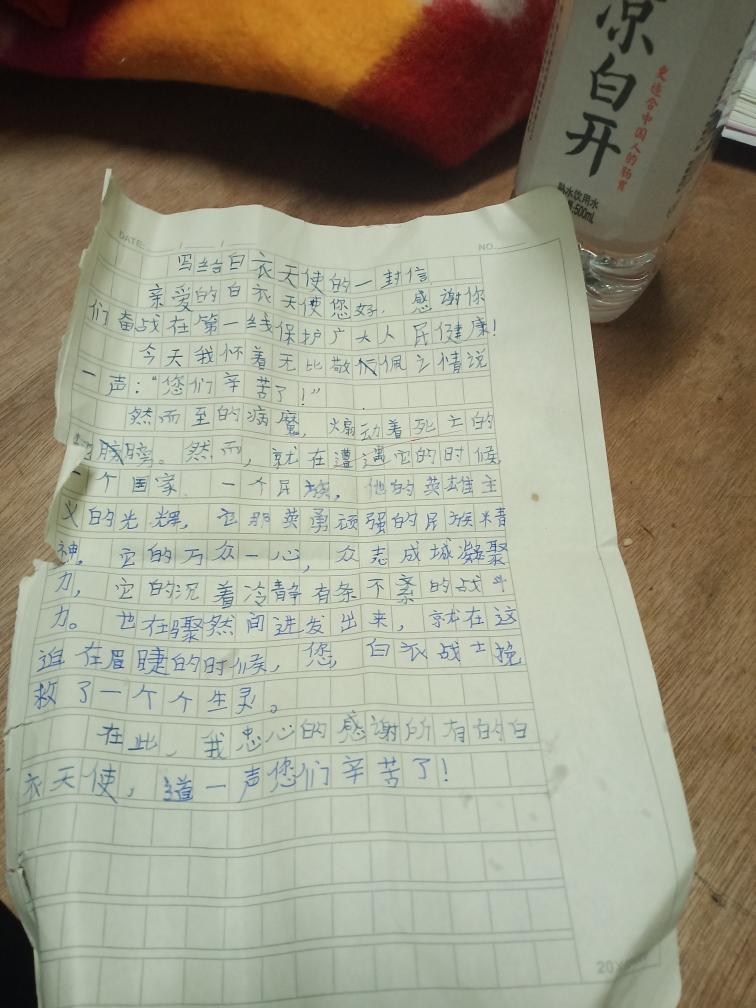 凉白开
更适合中国人的肠胃
饮用水
500mL
DATE: / /
NO.
写给白衣天使的一封信
亲爱的白衣天使您好,感谢你
们奋战在第一线保护广大人民健康!
今天我怀着无比敬佩之情说
一声:“您们辛苦了!”
然而至的病魔,煽动着死亡的
翅膀。然而,就在遭遇它的时候,
一个国家,一个民族,他的英雄主
义的光辉,它那英勇顽强的民族精
神,它的万众一心,众志成城凝聚
力,它的沉着冷静有条不紊的战斗
力。也在骤然间迸发出来,就在这
迫在眉睫的时候,您,白衣战士挽
救了一个个生灵。
在此,我忠心的感谢所有的白
衣天使,道一声您们辛苦了!